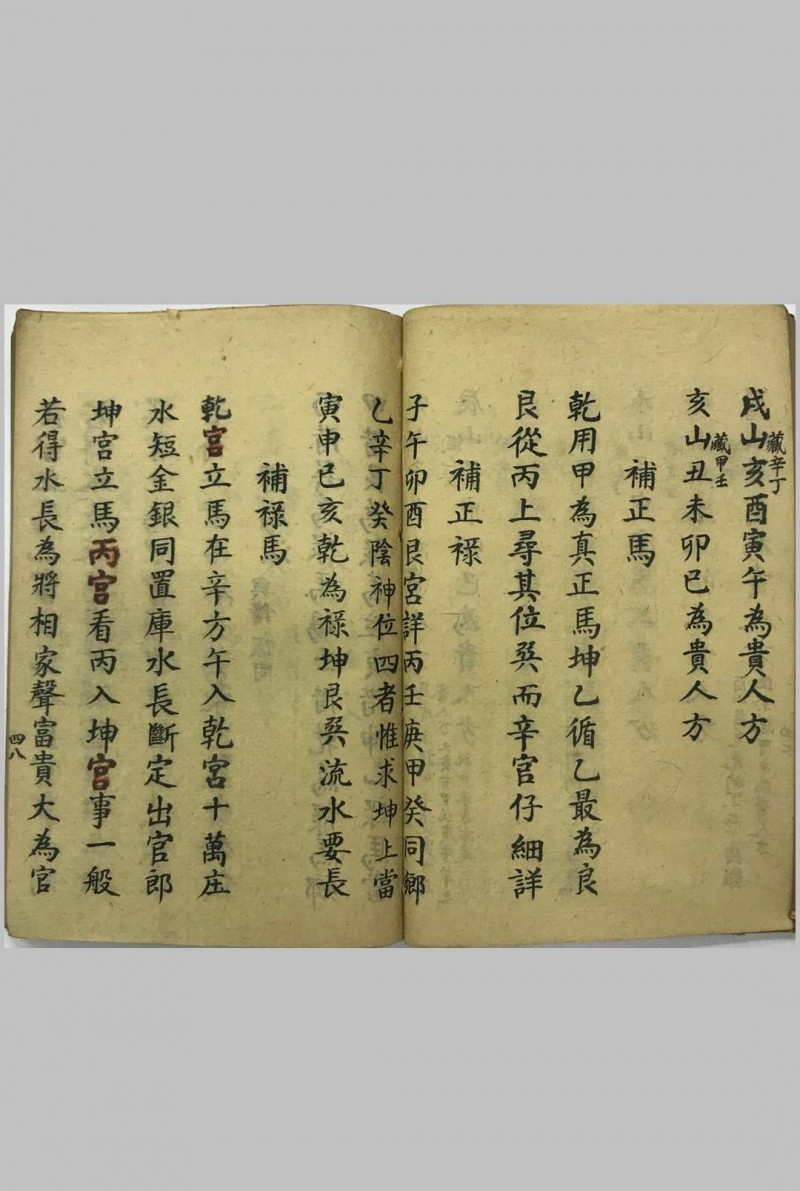 戌山亥酉寅午為貴人方
藏辛丁
亥山丑未卯巳為貴人方
藏甲壬
補正馬
乾用甲為真正馬坤乙循乙最為良
艮從丙上尋其位巽而辛官仔細詳
補正祿
子午卯酉艮宮詳丙壬庚甲癸同鄉
乙辛丁癸陰神位四者惟求坤上當
寅申巳亥乾為祿坤艮巽流水要長
補祿馬
乾宮立馬在辛方午入乾宮十萬庄
水短金銀同置庫水長斷定出官郎
坤宮立馬丙宮看丙入坤宮事一般
若得水長為將相家聲富貴大為官
四八